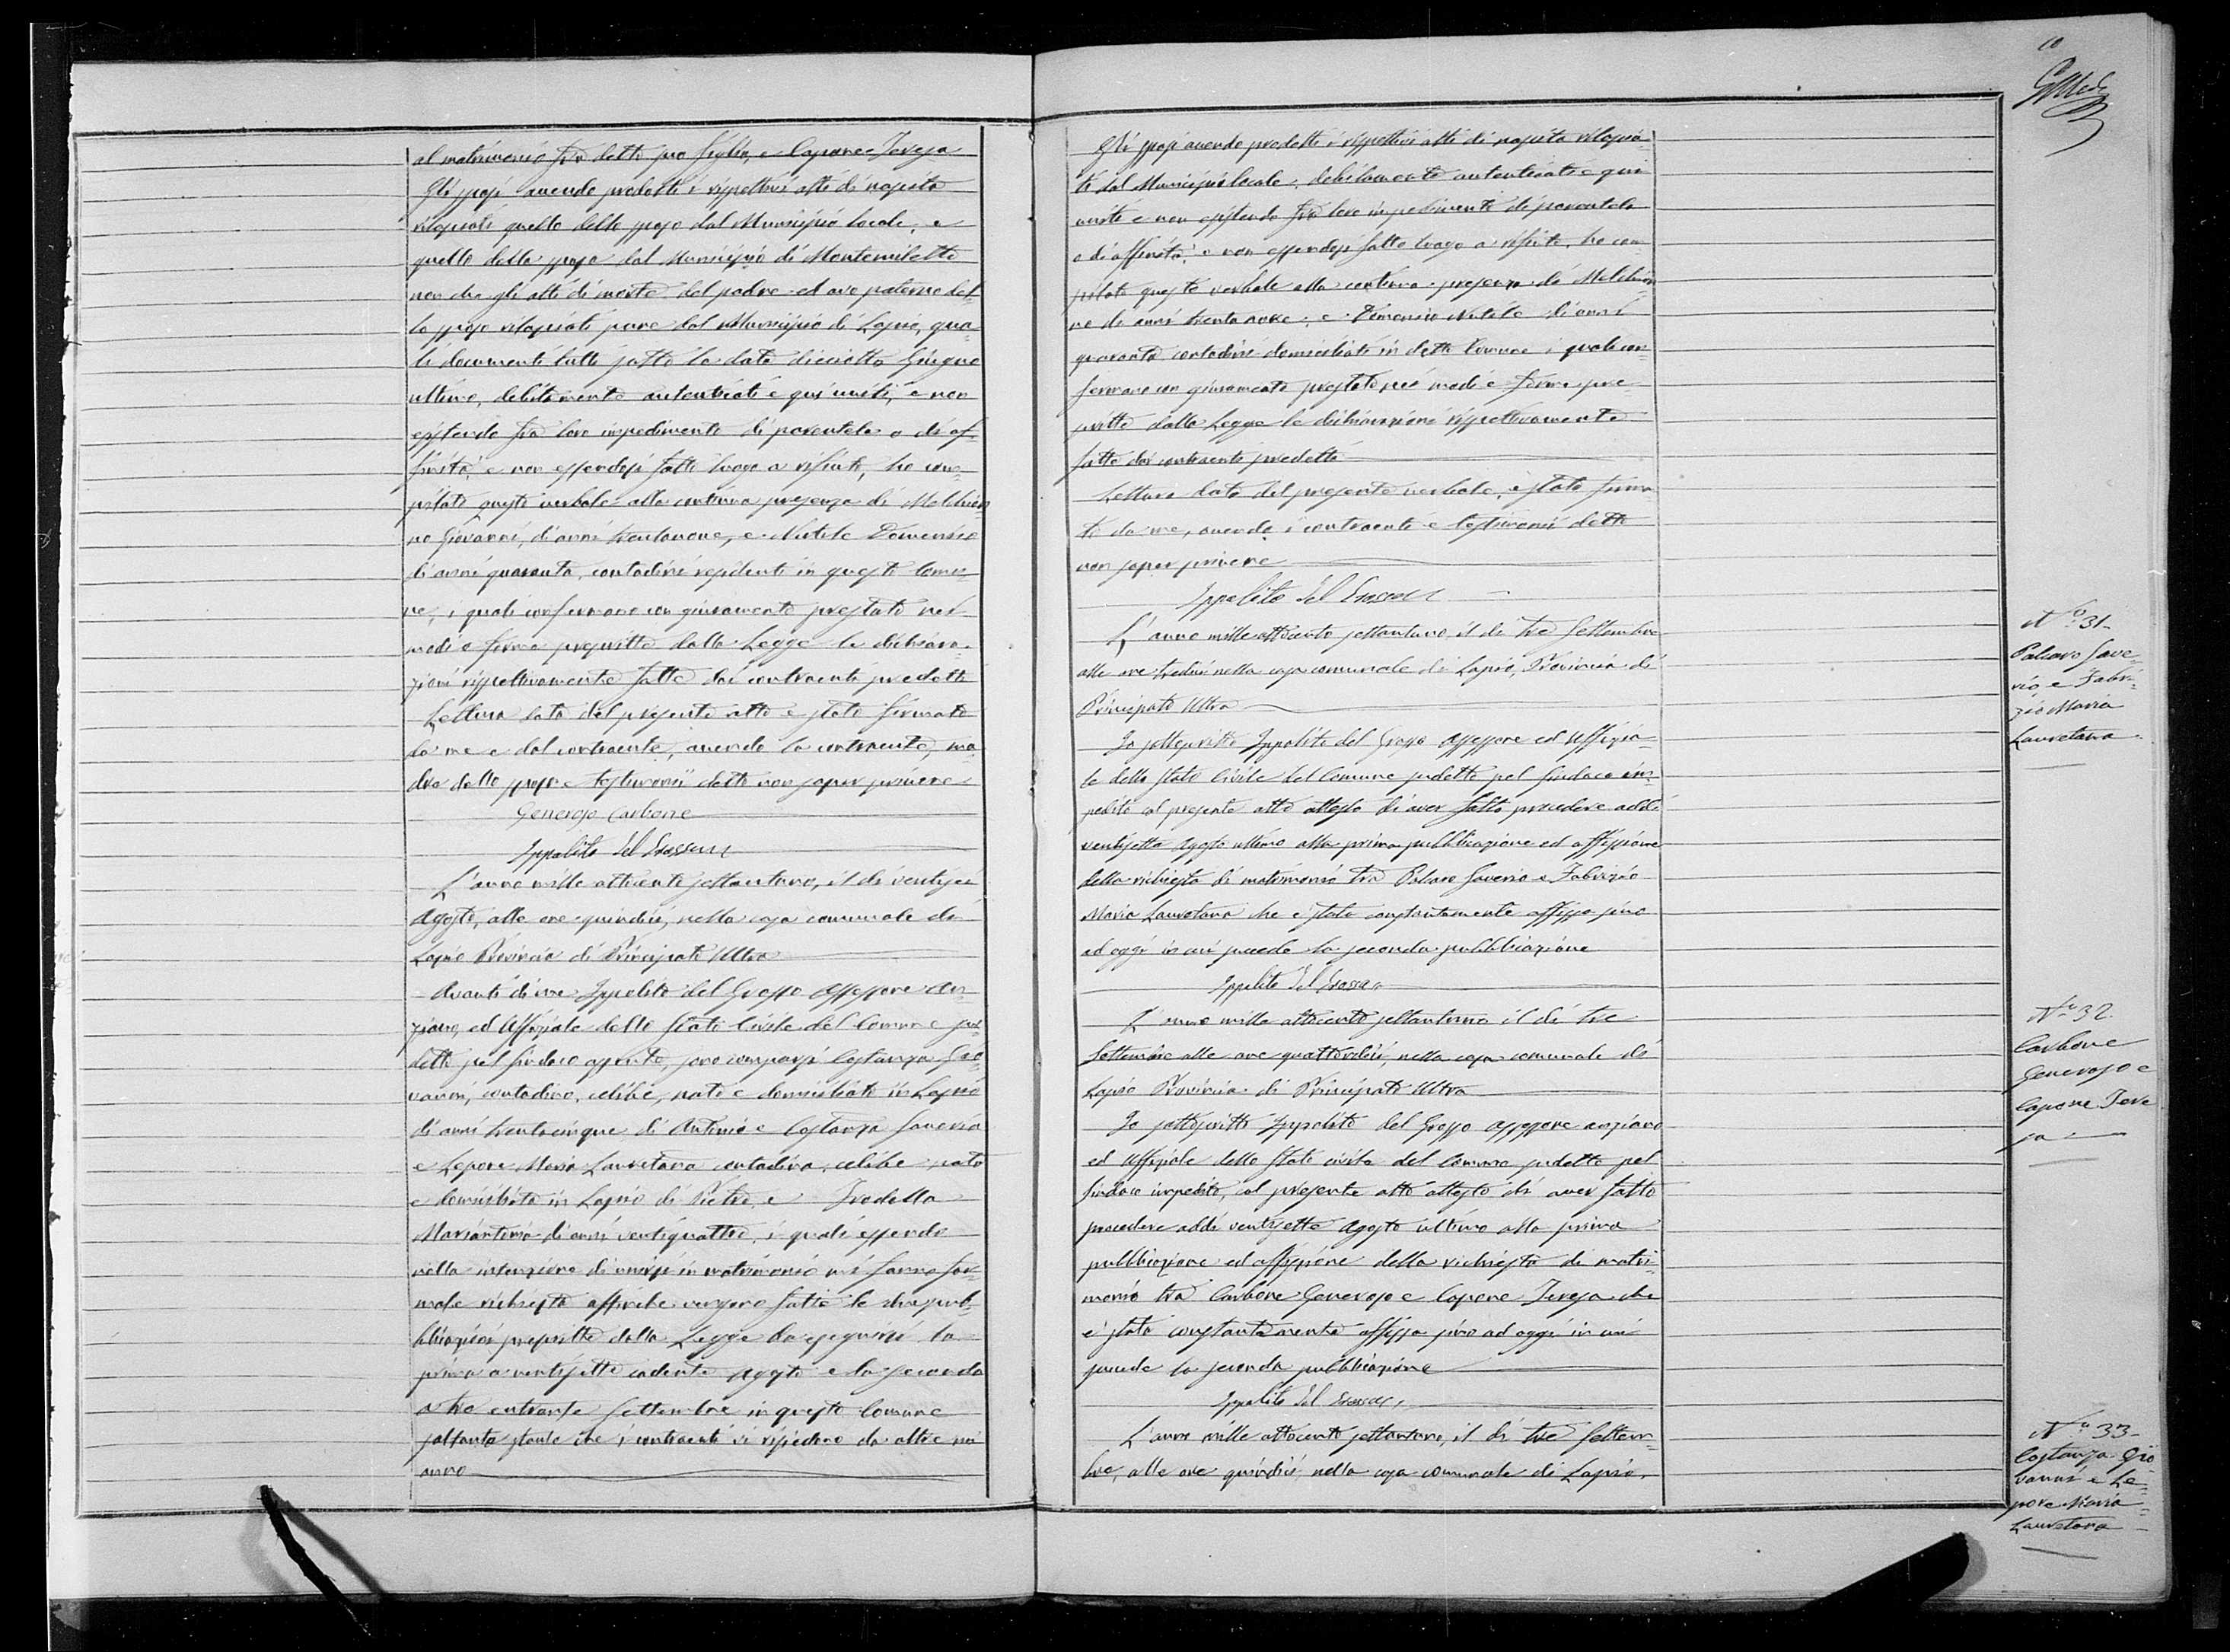 al matrimonio fra detto suo figlio, e Capone Teresa
Gli sposi avendo prodotti i rispettivi atti di nascita
rilasciati quello dello sposo dal Municipio locale, e
quello della sposa dal Municipio di Montemiletto
non che gli atti di morte del padre ed avo paterno del
lo sposo rilasciati pure dal Municipio di Lapio, qua-
li documenti tutti sotto la data diciotto Giugno
ultimo, debitamente autenticati e qui uniti, e non
esistendo fra loro impedimento di parentela o di af-
finità, e non essendosi fatto luogo a rifiuto, ho com-
pilato questo verbale alla continua presenza di Melchion
no Giovanni, di anni trentanove, e Nutile Domenico
di anni quaranta, contadini residenti in questo Comu-
ne, i quali confermano con giuramento prestato nei
modi e forme prescritte dalla Legge le dichiara-
zioni rispettivamente fatte dai contraenti predetti
Lettura data del presente atto è stato firmato
da me e dal contraente, avendo la contraente, ma
dre dello sposo e testimonii detto non saper scrivere
Generoso Carbone
Ippolito del Grosso
L'anno mille ottocento settantuno, il dì ventisei
Agosto, alle ore quindici, nella casa comunale di
Lapio Provincia di Principato Ultra
Avanti di me Ippolito del Grosso Assessore An-
ziano, ed Uffiziale dello Stato Civile del Comune su-
detto pel Sindaco assente, sono comparsi Costanza Gio
vanni, contadino, celibe, nato e domiciliato in Lapio
di anni trentacinque di Antonio e Costanza Saveria
e Lepore Maria Lauretana contadina, celibe nata
e domiciliata in Lapio di Pietro, e Trodella
Mariantonia di anni ventiquattro, i quali essendo
nella intenzione di unirsi in matrimonio mi fanno for-
male richiesta affinchè vengano fatte le due pub-
blicazioni prescritte dalla Legge da eseguirsi la
prima a ventisette cadente Agosto e la seconda
a tre entrante Settembre in questo Comune
soltanto stante che i contraenti vi risiedono da oltre un
anno
10
Gli sposi avendo prodotti i rispettivi atti di nascita rilascia
ti dal Municipio locale, debitamente autenticati e qui
uniti e non esistendo fra loro impedimento di parentela
o di affinità, e non essendosi fatto luogo a rifiuto, ho com
pilato questo verbale alla continua presenza di Melchion
no di anni trentanove, e Domenico Nutile di anni
quaranta contadini domiciliati in detto Comune i quali con-
fermano con giuramento prestato nei modi e forme pre
scritte dalla Legge le dichiarazioni rispettivamente
fatte dai contraenti predetti
Lettura data del presente verbale, è stato firma
to da me, avendo i contraenti e testimonii detto
non saper scrivere
Ippolito del Grosso
L'anno mille ottocento settantuno il dì tre Settembre
alle ore tredici nella casa comunale di Lapio, Provincia di
Principato Ultra
Io sottoscritto Ippolito del Grosso Assessore ed Uffizia-
le dello Stato Civile del Comune sudetto pel Sindaco im-
pedito col presente atto attesto di aver fatto procedere addì
ventisette Agosto ultimo alla prima pubblicazione ed affissione
della richiesta di matrimonio tra Palcaro Saverio e Fabrizio
Maria Lauretana che è stata constantemente affissa sino
ad oggi in cui succede la seconda pubblicazione
Ippolito del Grosso
L'anno mille ottocento settantuno il dì tre
Settembre alle ore quattordici, nella casa comunale di
Lapio Provincia di Principato Ultra
Io sottoscritto Ippolito del Grosso assessore anziano
ed Uffiziale dello Stato civile del Comune sudetto pel
Sindaco impedito, col presente atto attesto di aver fatto
procedere addì ventisette Agosto ultimo alla prima
pubblicazione ed affissione della richiesta di matri-
monio tra Carbone Generoso e Capone Teresa che
è stata constantemente affissa sino ad oggi in cui
succede la seconda pubblicazione
Ippolito del Grosso
L'anno mille ottocento settantuno, il dì tre Settem-
bre, alle ore quindici, nella casa comunale di Lapio,
N.o 31-
Palcaro Save-
rio, e Fabri-
zio Maria
Lauretana
N.o 32
Carbone
Generoso e
Capone Tere
sa
N.o 33-
Costanza Gio
vanni e Le-
pore Maria
Lauretana